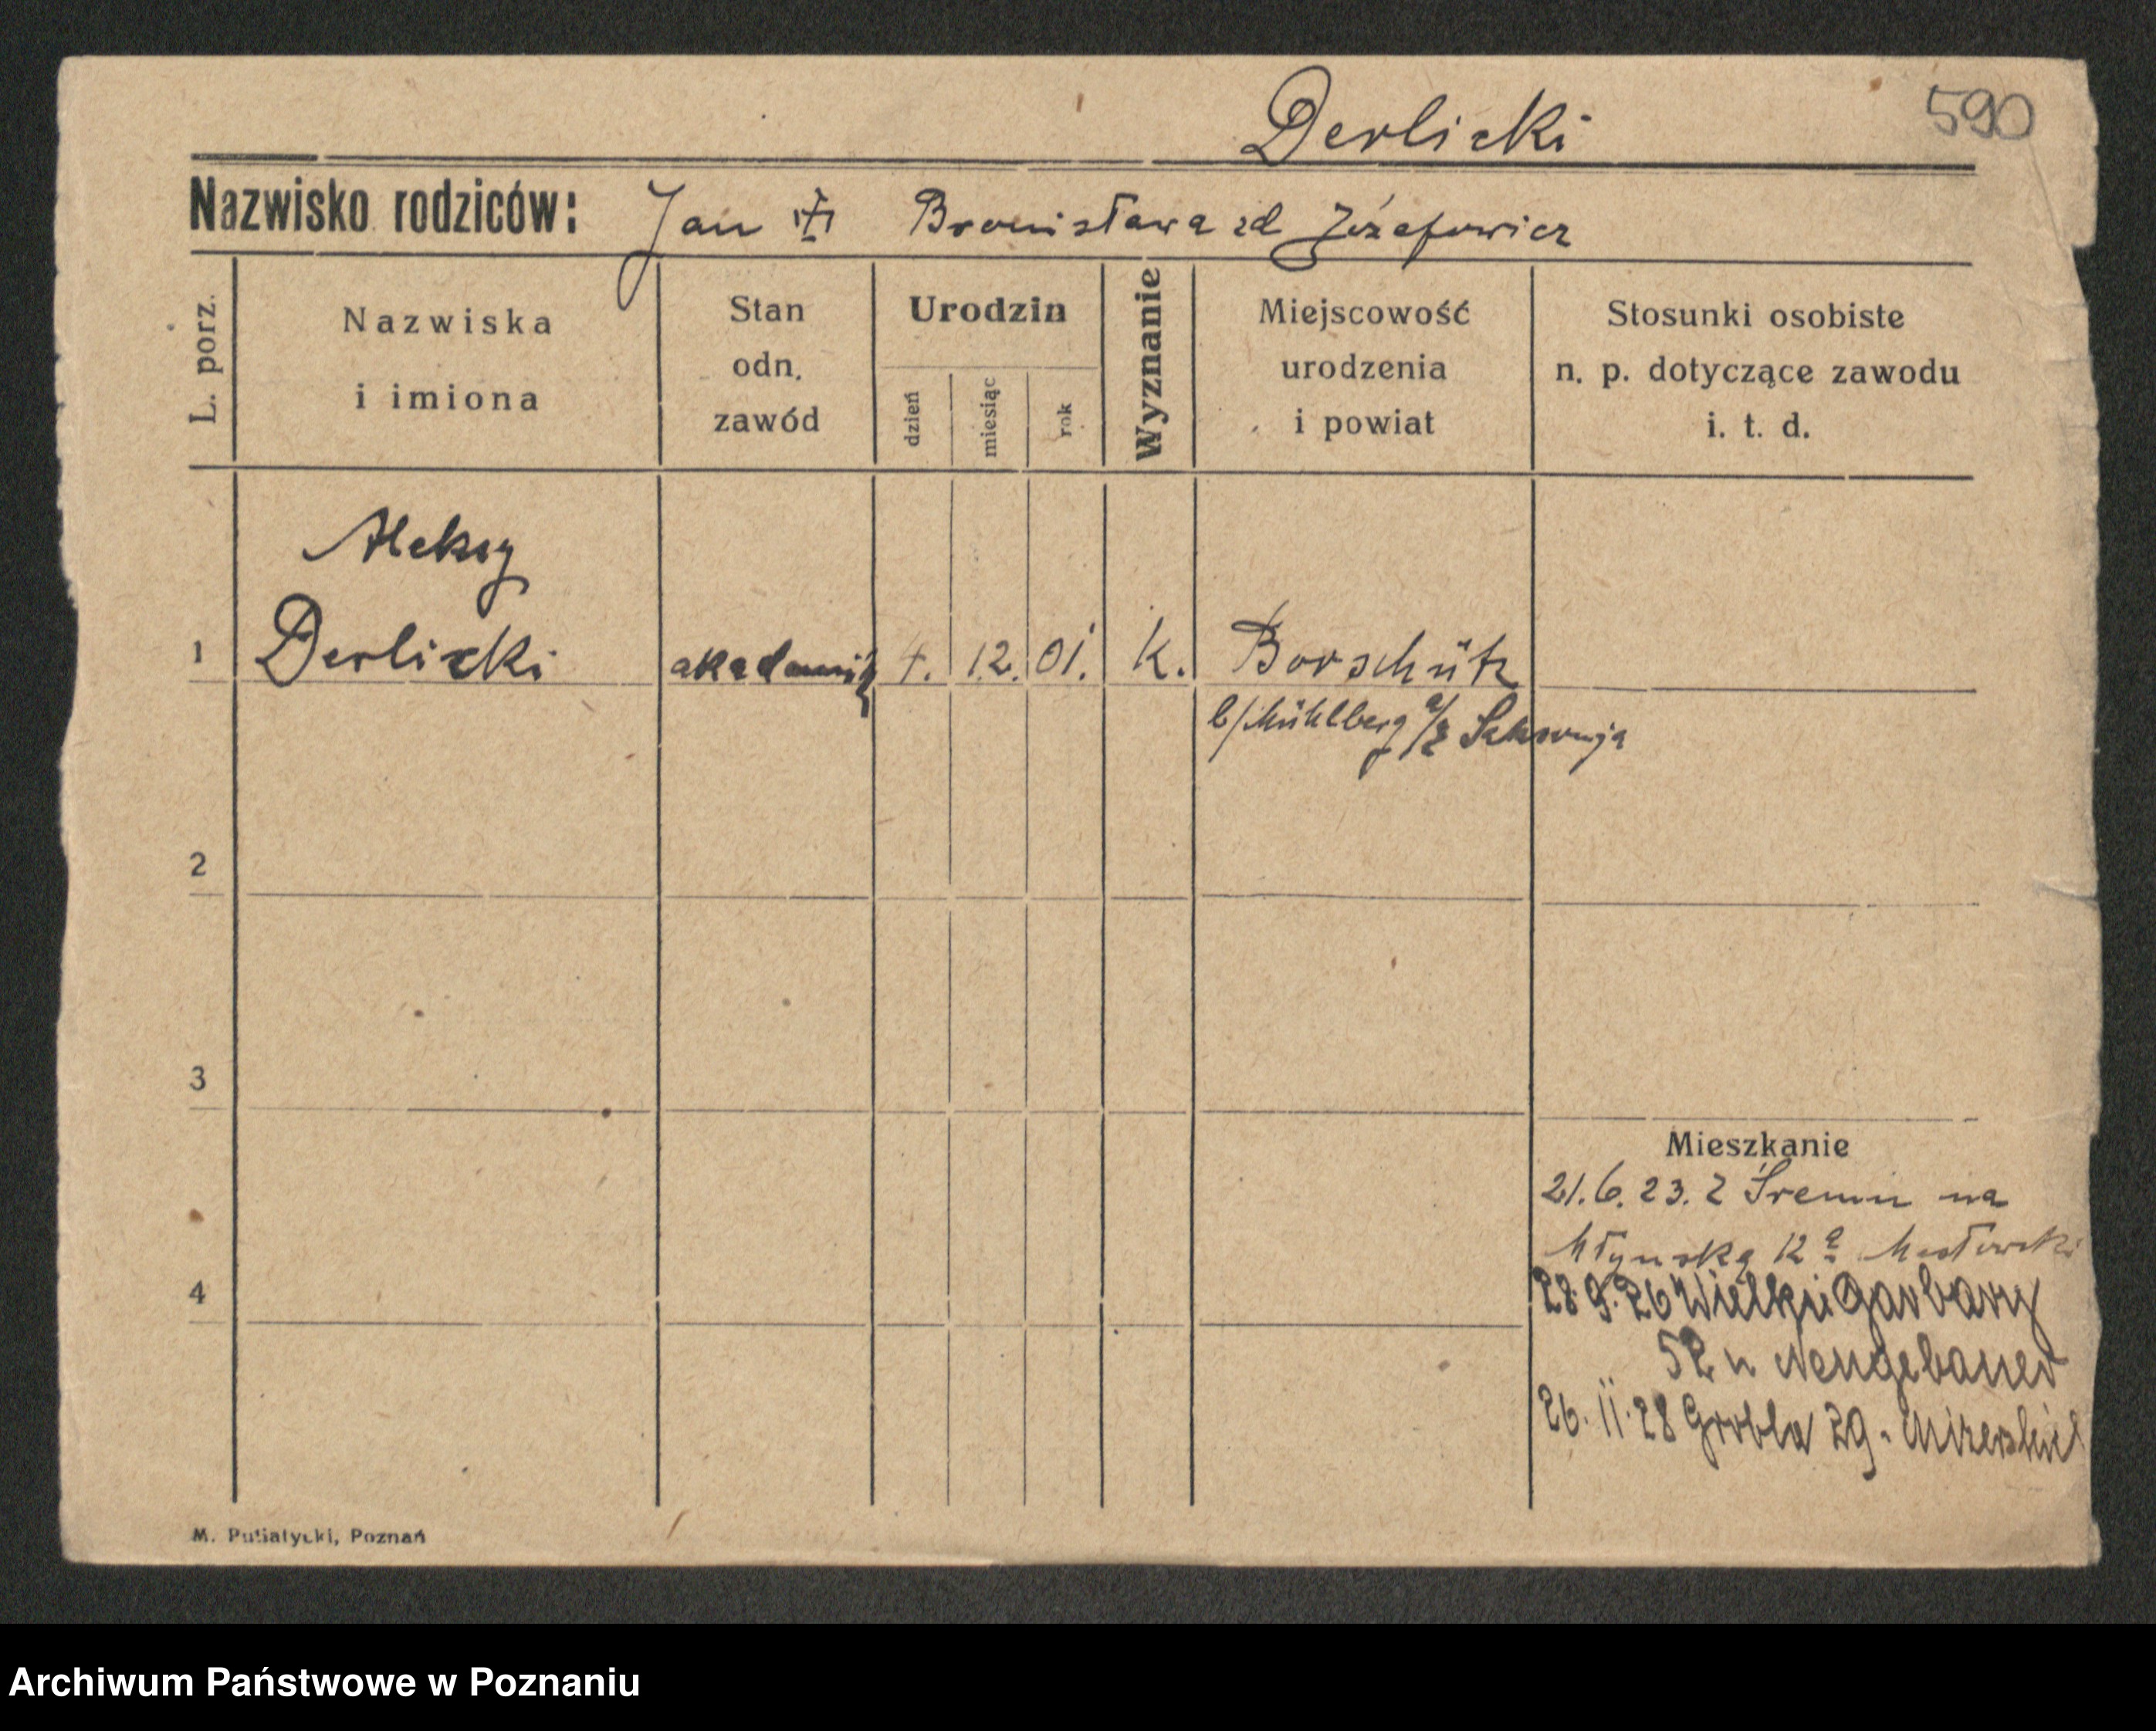 590
Derlicki
Nazwisko rodziców: Jan Bronisława zd Józefowicz
L. porz.
Nazwiska
i imiona
Stan
odn.
zawód
Urodzin
dzień
miesiąc
rok
Wyznanie
Miejscowość
urodzenia
i powiat
Stosunki osobiste
n. p. dotyczące zawodu
i. t. d.
Aleksy
1 Derlicki akademik 4. 12. 01. k. Borschütz
b/Mühlberg a/E Saksonja
2
3
Mieszkanie
21.6.23. z Śremu na
Młynską 12a
4
28.9.26 Wielkie Garbary
52 u Neugebauer
26.11.28 Grobla 29.
M. Putiatycki, Poznań
Archiwum Państwowe w Poznaniu